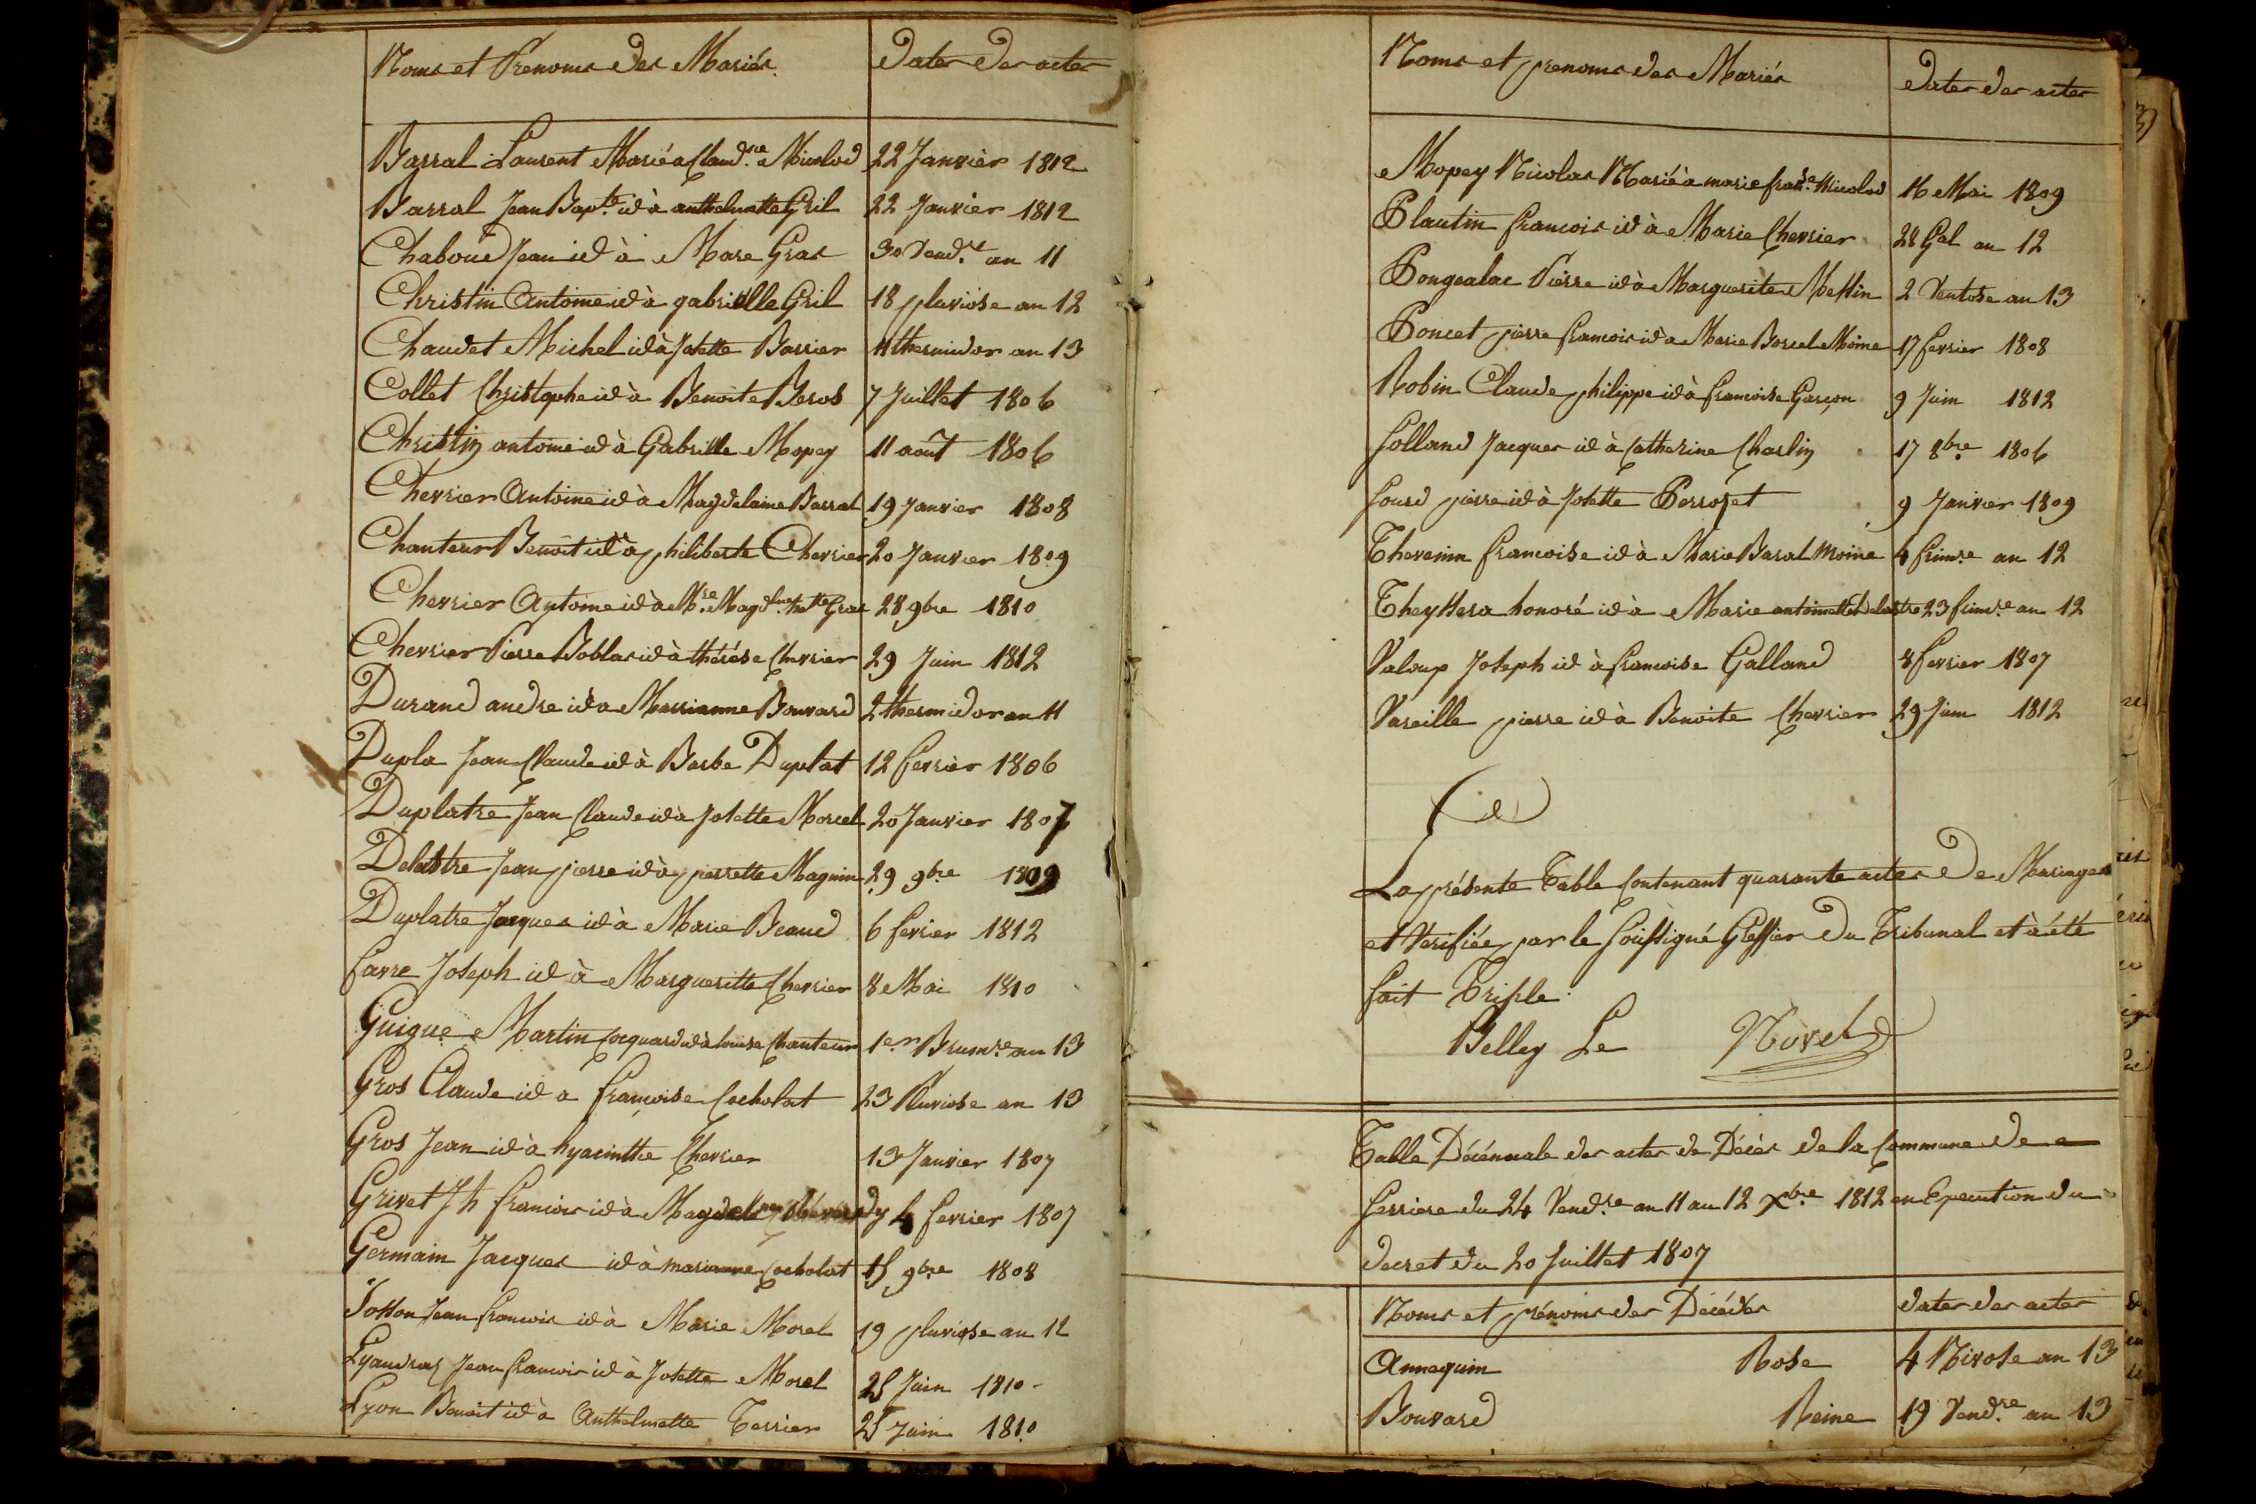 Noms et Prenoms des Mariés
Dates des actes
Barral Laurent Marié a Claud.ne Nicolod 22 Janvier 1812
Barral Jean Bap.te id à anthelmette Gril 22 Janvier 1812
Chaboud Jean id à Marie Gras 30 Vend.re an 11
Christin Antoine id à gabrielle Gril 18 pluviose an 12
Chaudet Michel id à Josette Barrier 11 thermidor an 13
Collet Christophe id à Benoite Beros 7 Juillet 1806
Christin antoine id à Gabrielle Mopey 11 août 1806
Chevrier Antoine id à Magdelaine Barral 19 Janvier 1808
Chanteur Benoit id à philiberte Chevrier 20 Janvier 1809
Chevrier Antoine id à M.ie Magd.ne Gras 28 9bre 1810
Chevrier Pierre Boblas id à thérése Chevrier 29 Juin 1812
Durand andre id a Marrianne Bouvard 2 thermidor an 11
Dupla Jean Claude id à Barbe Duplat 12 fevrier 1806
Duplatre Jean Claude id à Josette Morcel 20 Janvier 1807
Delastre Jean pierre id à pierrette Magnin 29 9bre 1809
Duplatre Jacques id à Marie Beaud 6 fevrier 1812
favre Joseph id à Margueritte Chevrier 8 Mai 1810
Guigue Martin Cocquard id à louise Chanteur 1er Brum.re an 13
Gros Claude id a françoise Cocholat 23 Pluviose an 13
Gros Jean id à hyacinthe Chevrier 13 Janvier 1807
Grivet Jh francois id à 4 fevrier 1807
Germain Jacques id à marianne Cocholat 15 9bre 1808
Josson Jean francois id à Marie Morel 19 pluviose an 12
Lyaudras Jean francois id à Josette Morel 25 Juin 1810
Lyon Benoit id à Anthelmette Terrier 25 Juin 1810
Noms et prenoms des Mariés
Dates des actes
Mopey Nicolas Marié à marie fran.se Nicolod 16 Mai 1809
Plautin francois id à Marie Chevrier 28 Gal an 12
Pongealac Pierre id à Marguerite Messin 2 Ventose an 13
Poncet pierre francois id a Marie Borcel Moine 17 fevrier 1808
Robin Claude philippe id à francoise Garçon 9 Juin 1812
Solland Jacques id à Catherine Charlin 17 8bre 1806
Sourd pierre id à Josette Perrozet 9 Janvier 1809
Thevenin francoise id à Marie Baral Moine 4 frim.re an 12
Theyssera honoré id à Marie antoinette Delastre 23 frim.re an 12
Valoup Joseph id à francoise Galland 8 fevrier 1807
Vareille pierre id à Benoite Chevrier 29 Juin 1812
La présente Table contenant quarante actes De Mariages
et Verifiée par le Soussigné Greffier Du Tribunal et à été
fait Triple
Belley Le
Table Décénnale des actes de Décès de la Commune de
serriere du 24 Vend.re an 11 au 12 Xbre 1812 en Execution du
decret du 20 Juillet 1807
Noms et prénoms des Décédés
Dates des actes
Annequin Rose 4 Nivose an 13
Bouvard Reine 19 Vend.re an 13